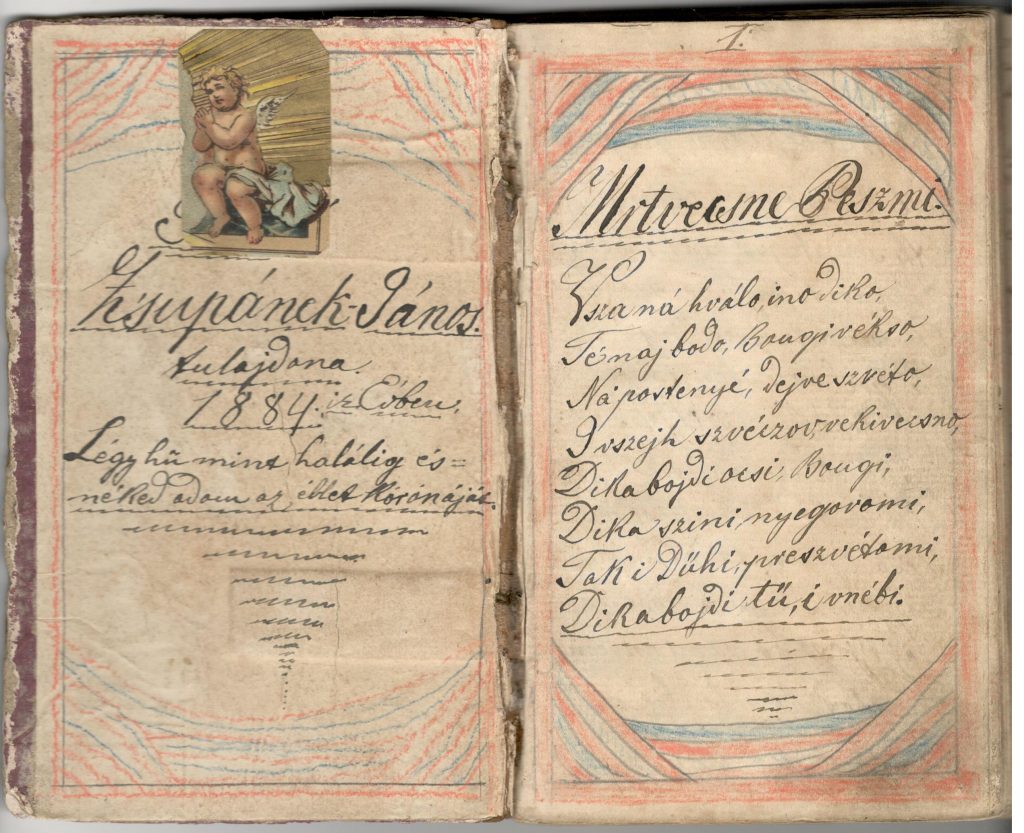 Zsupánek-János.
tulajdona.
1884. ik Évben.
Légy hü mint halálig és=
néked adom az éltet Kórónáját.
1.
Mrtvecsne Peszmi.
Vsza ná hválo, ino diko,
Té naj bodo, Bougi vékso,
Na postenyé, dejve szvéto,
I vszejh szvéczov, vekivecsno,
Dika bojdi ocsi, Bougi,
Dika szini, nyegovomi,
Tak i Dühi, preszvétomi,
Dika bojdi tü, i vnébi.